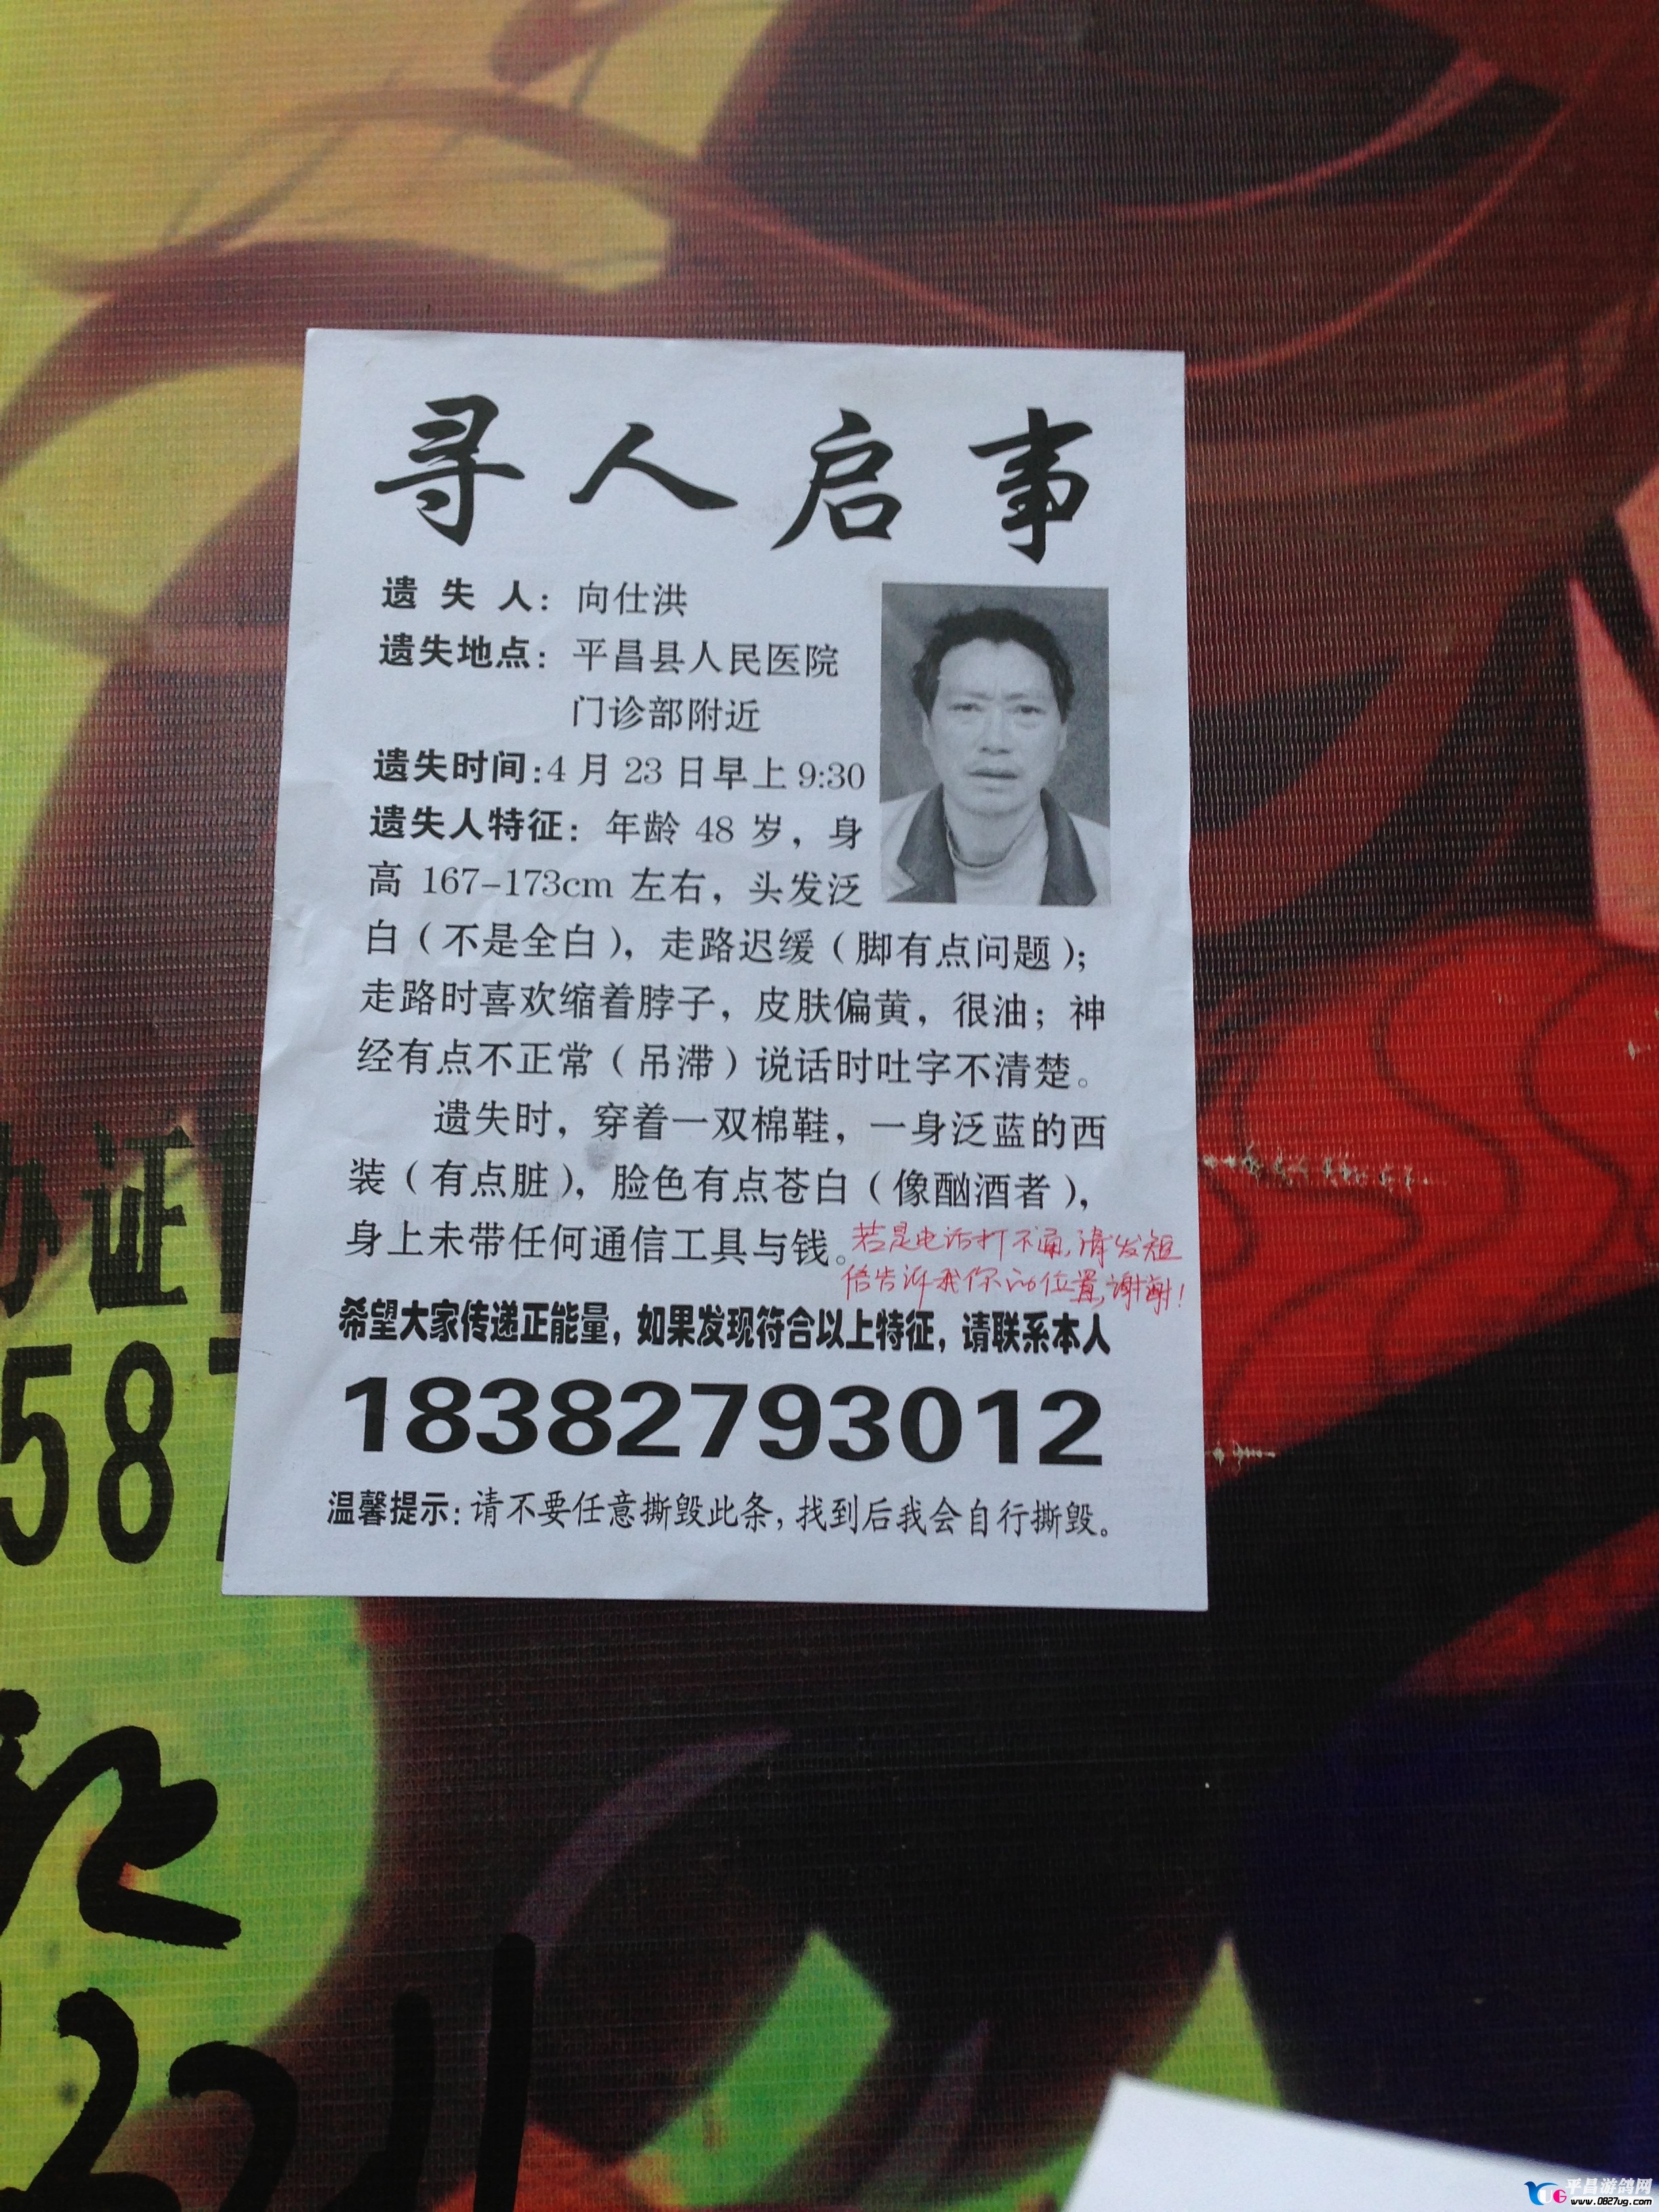 寻人启事
遗失人：向仕洪
遗失地点：平昌县人民医院
门诊部附近
遗失时间:4月23日早上9:30
遗失人特征：年龄48岁，身
高167-173cm左右，头发泛
白（不是全白），走路迟缓（脚有点问题）；
走路时喜欢缩着脖子，皮肤偏黄，很油；神
经有点不正常（吊滞）说话时吐字不清楚。
遗失时，穿着一双棉鞋，一身泛蓝的西
装（有点脏），脸色有点苍白（像酗酒者），
身上未带任何通信工具与钱。
若是电话打不通，请发短
信告诉我你的位置，谢谢！
希望大家传递正能量，如果发现符合以上特征，请联系本人
18382793012
温馨提示：请不要任意撕毁此条，找到后我会自行撕毁。
办证
587
平昌游鸽网
www.0827ug.com